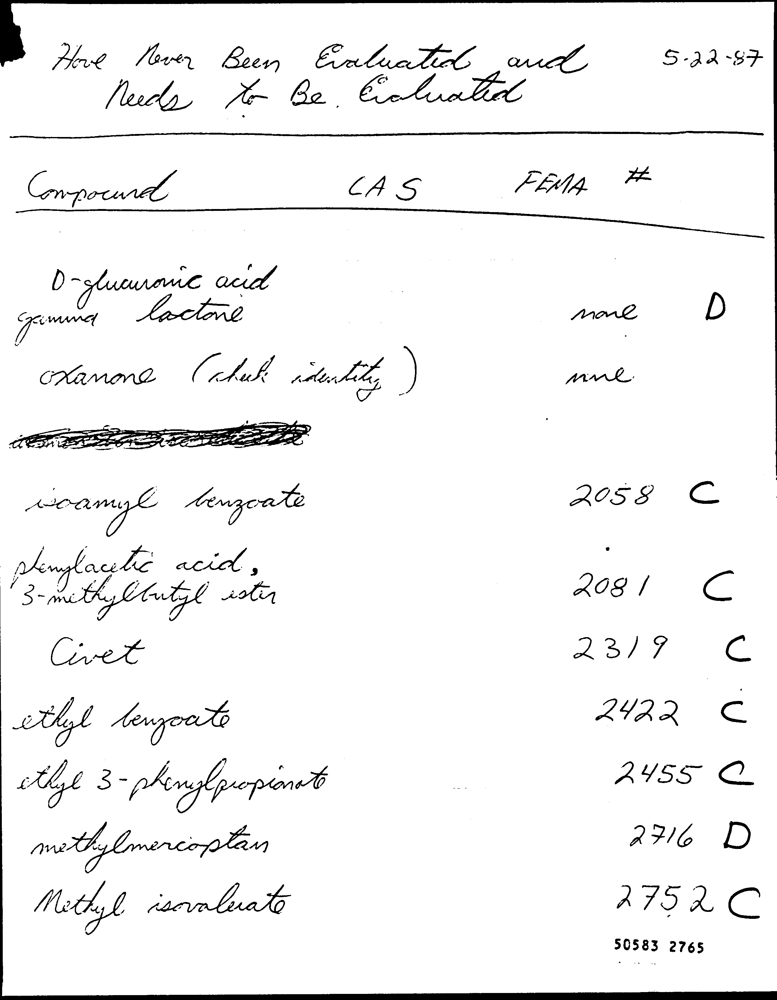 Have Never Been Evaluated and 5-22-87
Needs to Be Evaluated
Compound CAS FEMA #
D-glucuronic acid
gamma lactone none D
oxanone (check identity) none
isoamyl benzoate 2058 C
phenylacetic acid,
3-methylbutyl ester 2081 C
Civet 2319 C
ethyl benzoate 2422 C
ethyl 3-phenylpropionate 2455 C
methylmercaptan 2716 D
Methyl isovalerate 2752 C
50583 2765